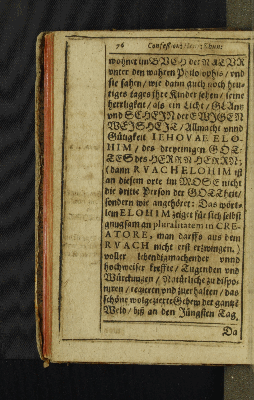 76 Confessio
wohnet im BVCH der NATVR
vnter den wahren Philosophis / vnd
sie sahen / wie dann auch noch heu-
tiges tages ihre Kinder sehen / seine
herrligkeit / als ein Licht / GLAntz
vnd SCHEIN der EWIGEN
WEISHEIT / Allmacht vnnd
Gütigkeit IEHOVAE ELO-
HIM / des dreyeinigen GOT-
TES des HERRN HERRN:
(dann RVACH ELOHIM ist
an diesem orte im MOSE nicht
die dritte Person der GOTtheit /
sondern wie angehöret: Das wört-
lein ELOHIM zeiget für sich selbst
gnugsam an pluralitatem in CRE-
ATORE, man darffs aus dem
RVACH nicht erst erzwingen)
voller lebendigmachender vnnd
hochweiser kreffte / Tugenden vnd
Würckungen / Natürliche zu dispo-
niren / regieren vnd zuerhalten / das
schöne wolgezierte Gebew der gantzē
Weld / biß an den Jüngsten Tag.
Da